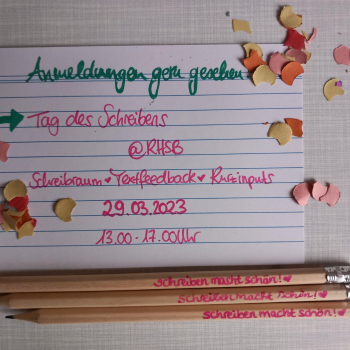 Anmeldungen gern gesehen
Tag des Schreibens
@RHSB
Schreibraum ♥ Textfeedback ♥ Kurzinputs
29.03.2023
13.00 - 17.00 Uhr
Schreiben macht schön! ♥
Schreiben macht schön! ♥
Schreiben macht schön! ♥